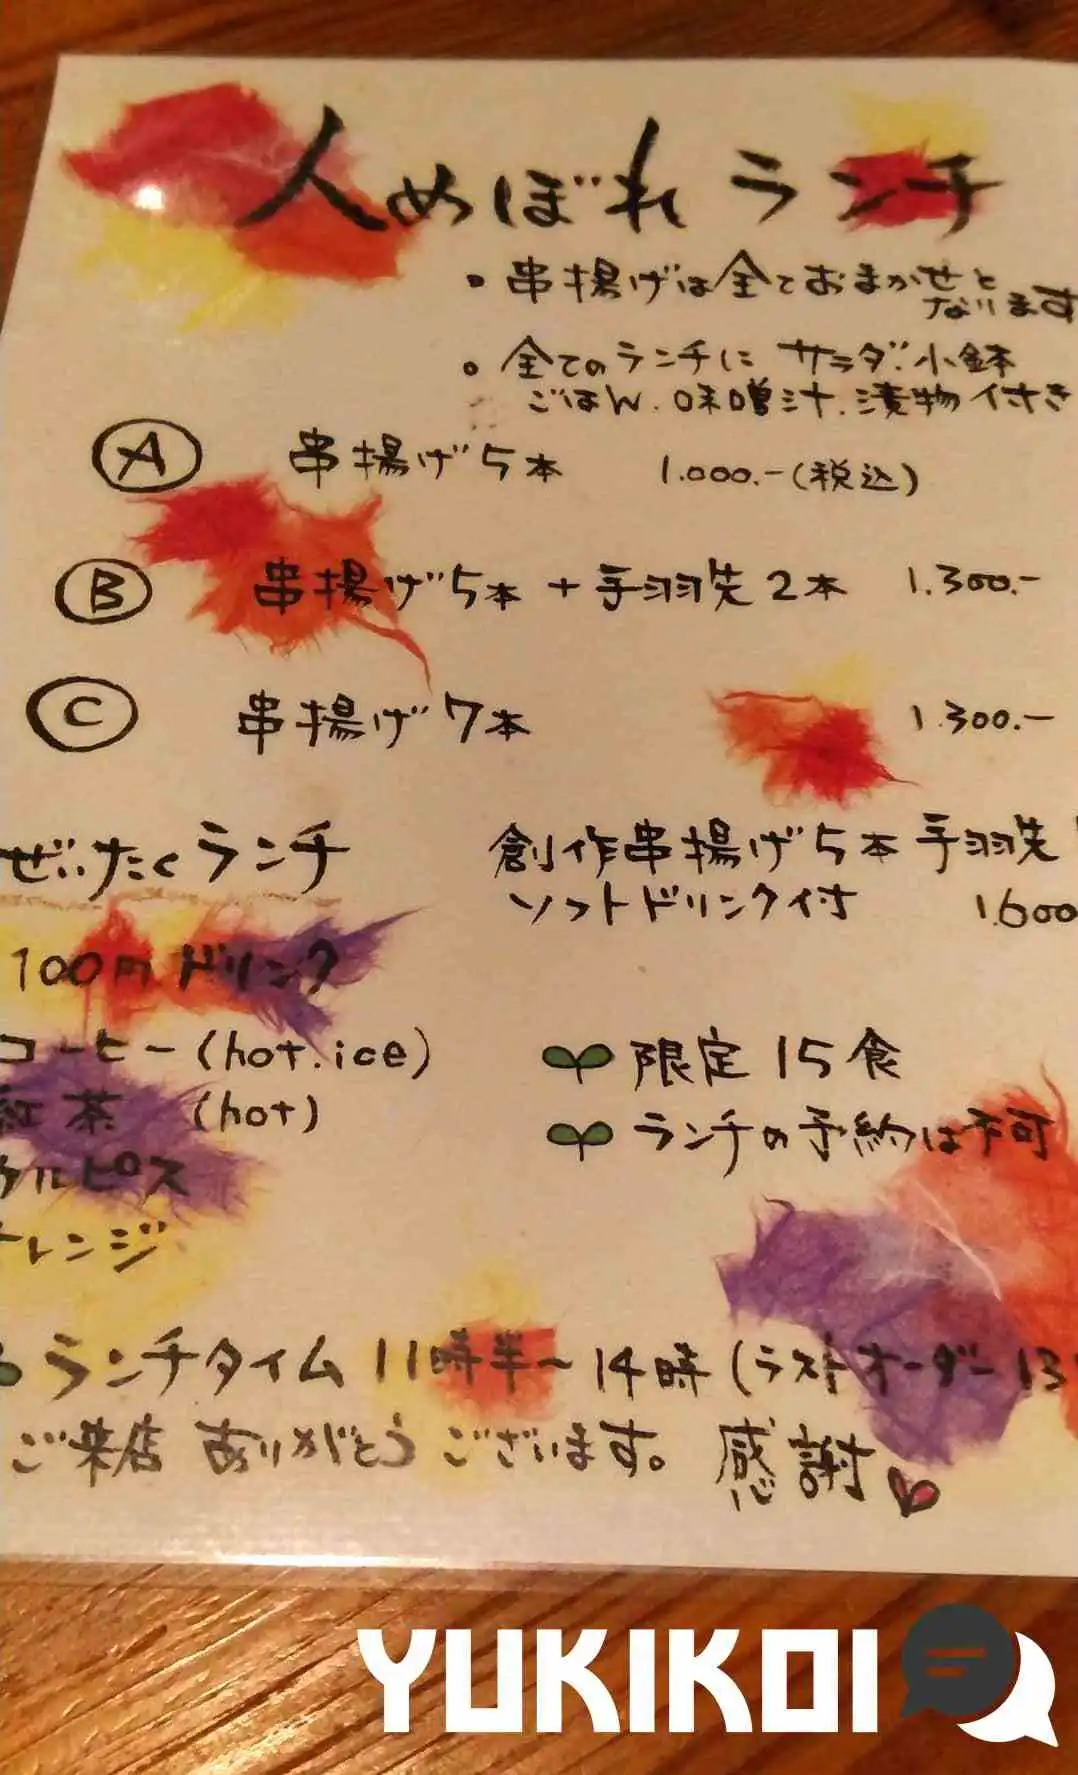 人めぼれランチ
• 串揚げは全ておまかせと
なります
• 全てのランチに サラダ.小鉢
ごはん.味噌汁.漬物付き
A 串揚げ5本 1.000.-(税込)
B 串揚げ5本 + 手羽先2本 1.300.-
C 串揚げ7本 1.300.-
ぜいたくランチ 創作串揚げ5本 手羽先
ソフトドリンク付 1.600
100円ドリンク
コーヒー(hot.ice)
紅茶 (hot)
カルピス
オレンジ
限定15食
ランチの予約は不可
ランチタイム 11時半~14時(ラストオーダー13
ご来店ありがとうございます。 感謝
YUKIKOI